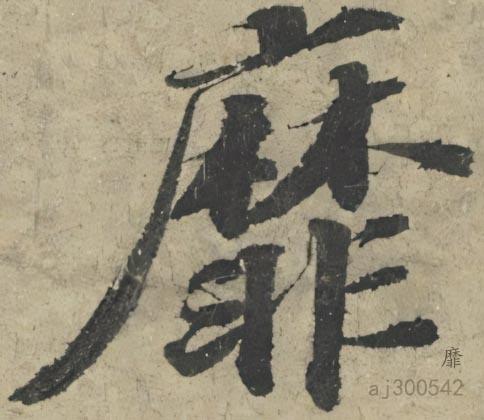 靡
靡
aj300542